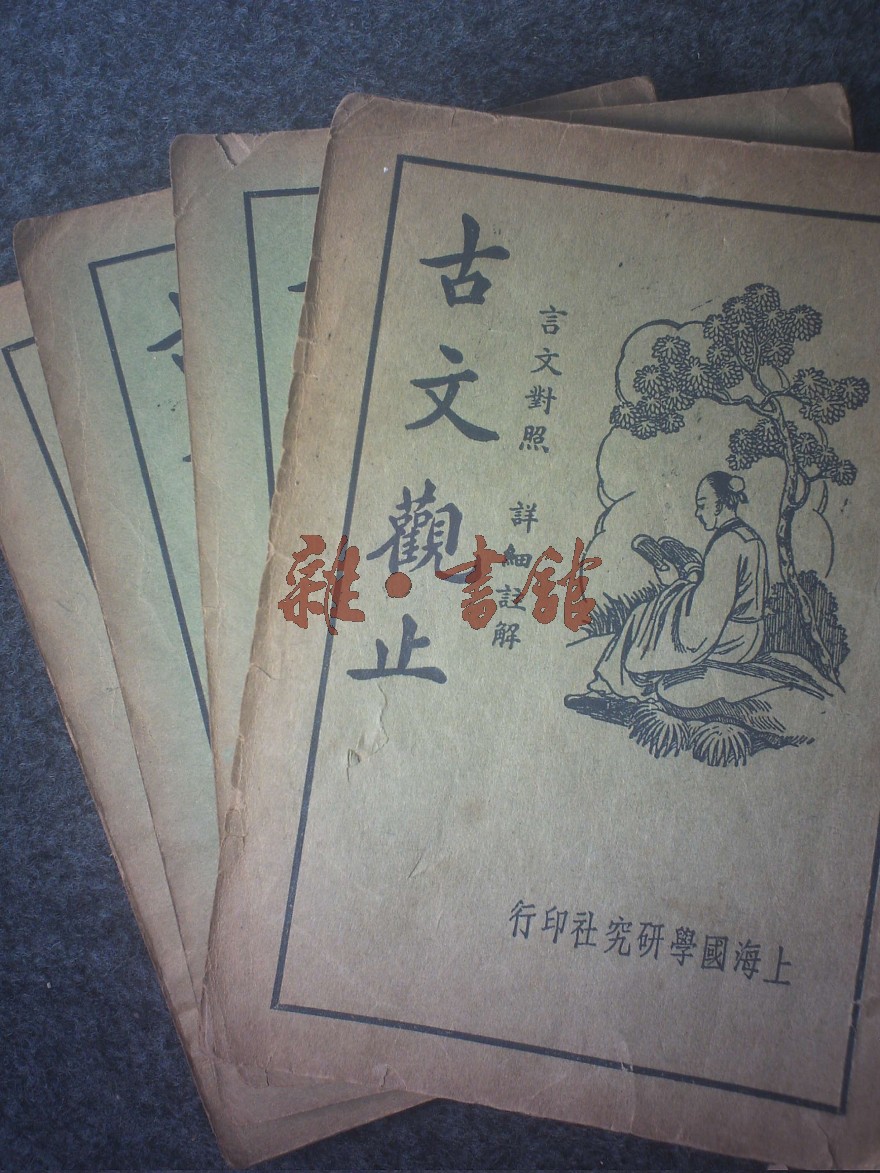 古文觀止
言文對照 詳細註解
上海國學研究社印行
雜·書館